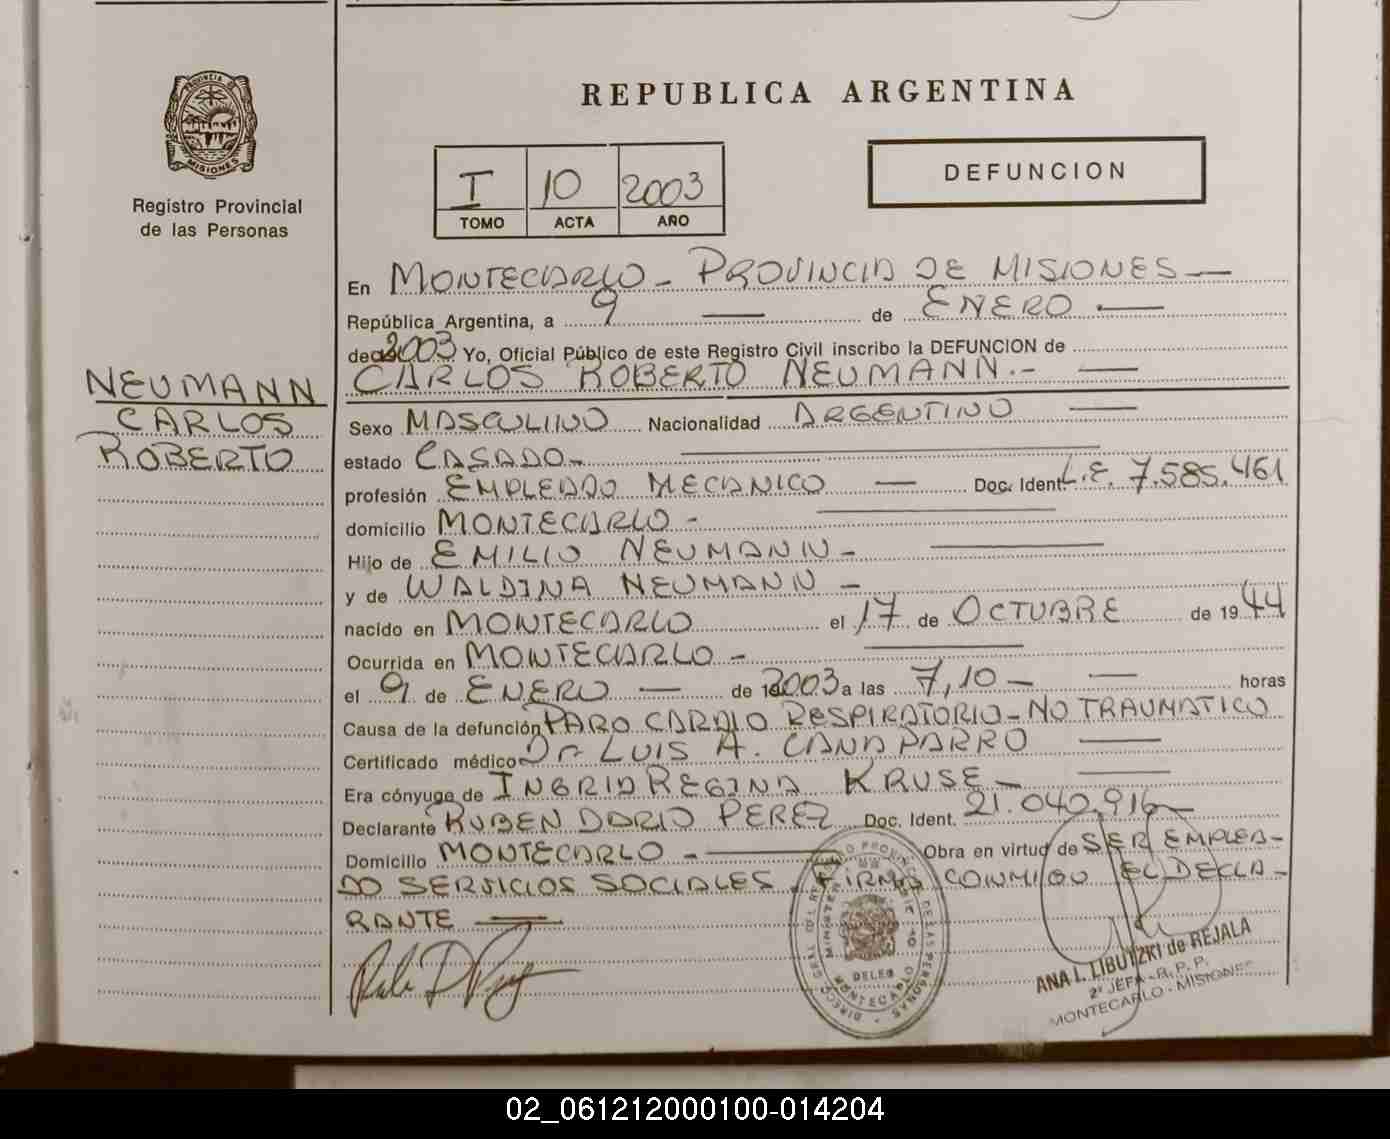 PROVINCIA D
MISIONES
Registro Provincial
de las Personas
REPUBLICA ARGENTINA
I 10 2003
TOMO ACTA AÑO
DEFUNCION
En MONTECARLO - PROVINCIA DE MISIONES
República Argentina, a 9 de ENERO
de 2003 Yo, Oficial Público de este Registro Civil inscribo la DEFUNCION de
CARLOS ROBERTO NEUMANN.-
NEUMANN
CARLOS
ROBERTO
Sexo MASCULINO Nacionalidad ARGENTINO
estado CASADO-
profesión EMPLEADO MECANICO Doc. Ident. L.E. 7.585.461
domicilio MONTECARLO -
Hijo de EMILIO NEUMANN -
y de WALDINA NEUMANN -
nacido en MONTECARLO el 17 de OCTUBRE de 1944
Ocurrida en MONTECARLO -
el 9 de ENERO de 2003 a las 7,10 - horas
Causa de la defunción PARO CARDIO RESPIRATORIO - NO TRAUMATICO
Certificado médico Dr LUIS A. CANAPARRO
Era cónyuge de INGRID REGINA KRUSE -
Declarante RUBEN DARIO PEREZ Doc. Ident. 21.040.916
Domicilio MONTECARLO - Obra en virtud de SER EMPLEA-
DO SERVICIOS SOCIALES. FIRMA CONMIGO EL DECLA-
RANTE
DELEG
MONTECARLO
ANA L. LIBUTZKI de REJALA
2ª JEFA - R. P. P.
MONTECARLO - MISIONES
02_061212000100-014204